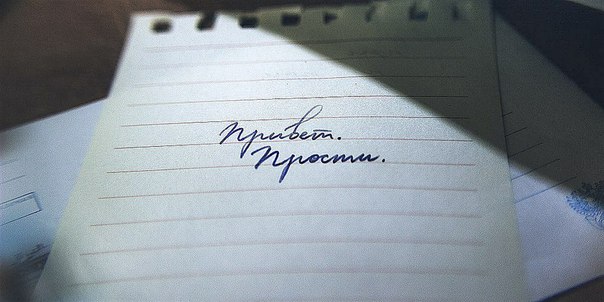 Привет.
Прости.